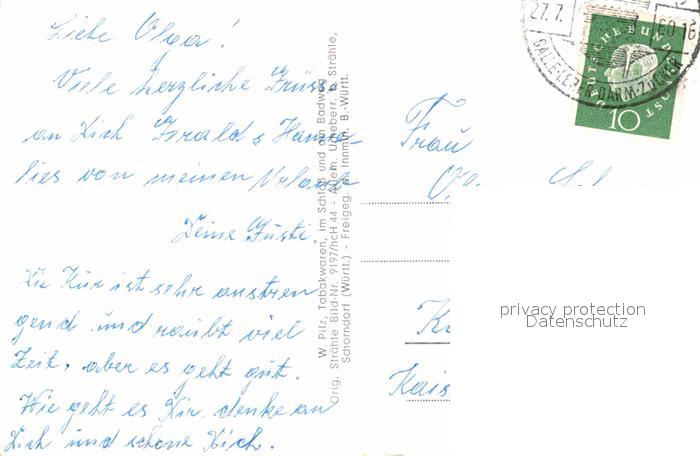 Liebe Olga!
Viele herzliche Grüße
an Dich Gerald & Hanne-
lies von meinen Urlaub
Deine Gusti.
Die Kur ist sehr anstren
gend und raubt viel
Zeit, aber es geht gut.
Wie geht es Dir, denke an
Dich und schone Dich.
W. Pilz, Tabakwaren, im Schloß und am Badweg
Orig. Strähle Bild-Nr. 9197/hcH 44 - Allein. Urheberr. b. Strähle,
Schorndorf (Württ.) - Freigeg. v. Innmin. B.-Württ.
Frau
Kais
27.7.
60-16
GALLE-LEBER-DARM-ZUCKER
DEUTSCHE BUNDESPOST
10
privacy protection
Datenschutz